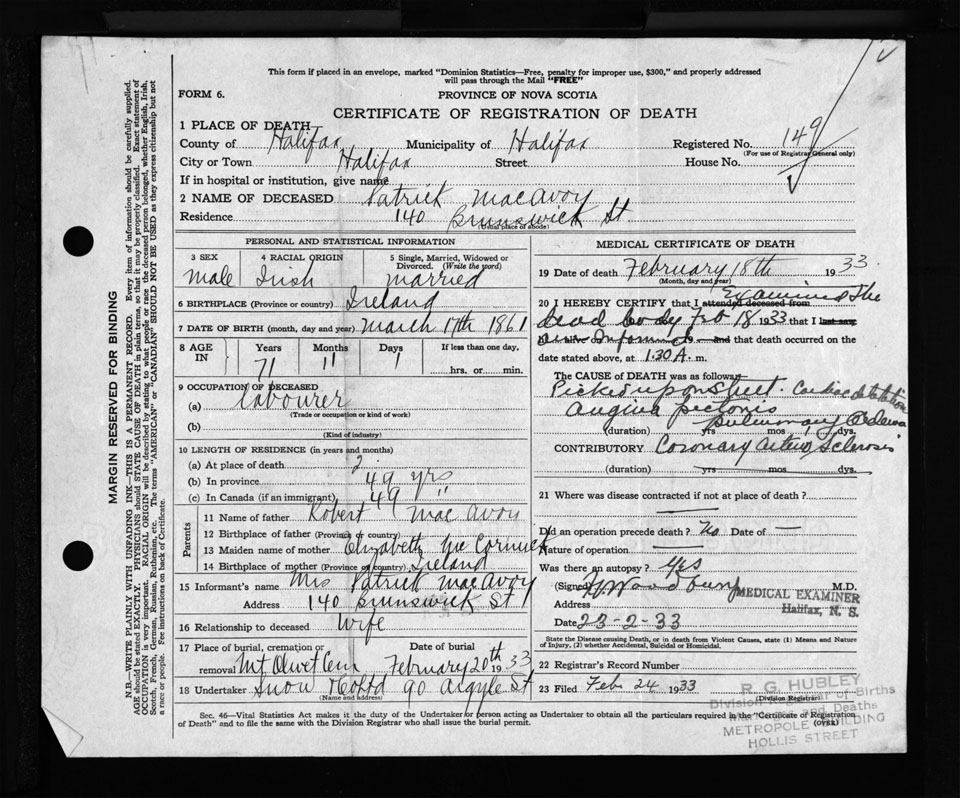 This form if placed in an envelope, marked "Dominion Statistics—Free, penalty for improper use, $300," and properly addressed
will pass through the Mail "FREE"
FORM 6.
PROVINCE OF NOVA SCOTIA
CERTIFICATE OF REGISTRATION OF DEATH
1 PLACE OF DEATH
County of Halifax Municipality of Halifax Registered No. 149
(For use of Registrar General only)
City or Town Halifax Street House No.
If in hospital or institution, give name
2 NAME OF DECEASED Patrick MacAvoy
Residence 140 Brunswick St
(Usual place of abode)
PERSONAL AND STATISTICAL INFORMATION
3 SEX 4 RACIAL ORIGIN 5 Single, Married, Widowed or
Divorced. (Write the word)
Male Irish married
6 BIRTHPLACE (Province or country) Ireland
7 DATE OF BIRTH (month, day and year) March 17th 1861
8 AGE IN Years Months Days If less than one day,
71 11 1 hrs. or min.
9 OCCUPATION OF DECEASED
(a) Labourer
(Trade or occupation or kind of work)
(b)
(Kind of industry)
10 LENGTH OF RESIDENCE (in years and months)
(a) At place of death 2
(b) In province 49 yrs
(c) In Canada (if an immigrant) 49 "
Parents
11 Name of father Robert MacAvoy
12 Birthplace of father (Province or country)
13 Maiden name of mother Elizabeth McCormick
14 Birthplace of mother (Province or country) Ireland
15 Informant's name Mrs Patrick MacAvoy
Address 140 Brunswick St
16 Relationship to deceased Wife
17 Place of burial, cremation or Date of burial
removal Mt Olivet Cem February 20th 1933
18 Undertaker Snow & Co Ltd 90 Argyle St
(Name and address)
MEDICAL CERTIFICATE OF DEATH
19 Date of death February 18th 1933.
(Month, day and year)
20 I HEREBY CERTIFY that I attended deceased from Examined the
dead body Feb 18 1933 that I last saw
19 and that death occurred on the
date stated above, at 1.30 A. m.
The CAUSE of DEATH was as follows:
Picked up on Street. Cardiac dilatation
Angina pectoris
pulmonary Oedema
(duration) yrs mos dys.
CONTRIBUTORY Coronary Artery Sclerosis
(duration) yrs mos dys.
21 Where was disease contracted if not at place of death?
Did an operation precede death? No Date of —
Nature of operation —
Was there an autopsy? Yes
(Signed) M.D.
MEDICAL EXAMINER
Address Halifax, N. S.
Date 23-2-33
State the Disease causing Death, or in death from Violent Causes, state (1) Means and Nature
of Injury, (2) whether Accidental, Suicidal or Homicidal.
22 Registrar's Record Number
23 Filed Feb 24 1933
(Division Registrar)
R. G. HUBLEY
Division Registrar of Births
Marriages and Deaths
METROPOLE BUILDING
HOLLIS STREET
Sec. 46—Vital Statistics Act makes it the duty of the Undertaker or person acting as Undertaker to obtain all the particulars required in the "Certificate of Registration
of Death" and to file the same with the Division Registrar who shall issue the burial permit.
(OVER)
MARGIN RESERVED FOR BINDING
N.B.—WRITE PLAINLY WITH UNFADING INK—THIS IS A PERMANENT RECORD. Every item of information should be carefully supplied.
AGE should be stated EXACTLY. PHYSICIANS should STATE CAUSE OF DEATH in plain terms, so that it may be properly classified. Exact statement of
OCCUPATION is very important. RACIAL ORIGIN will be described by stating to what people or race the deceased person belonged, whether English, Irish,
Scotch, French, German, Russian, Ruthenian, etc. The terms "AMERICAN" or "CANADIAN" SHOULD NOT BE USED as they express citizenship but not
a race or people. See instructions on back of Certificate.